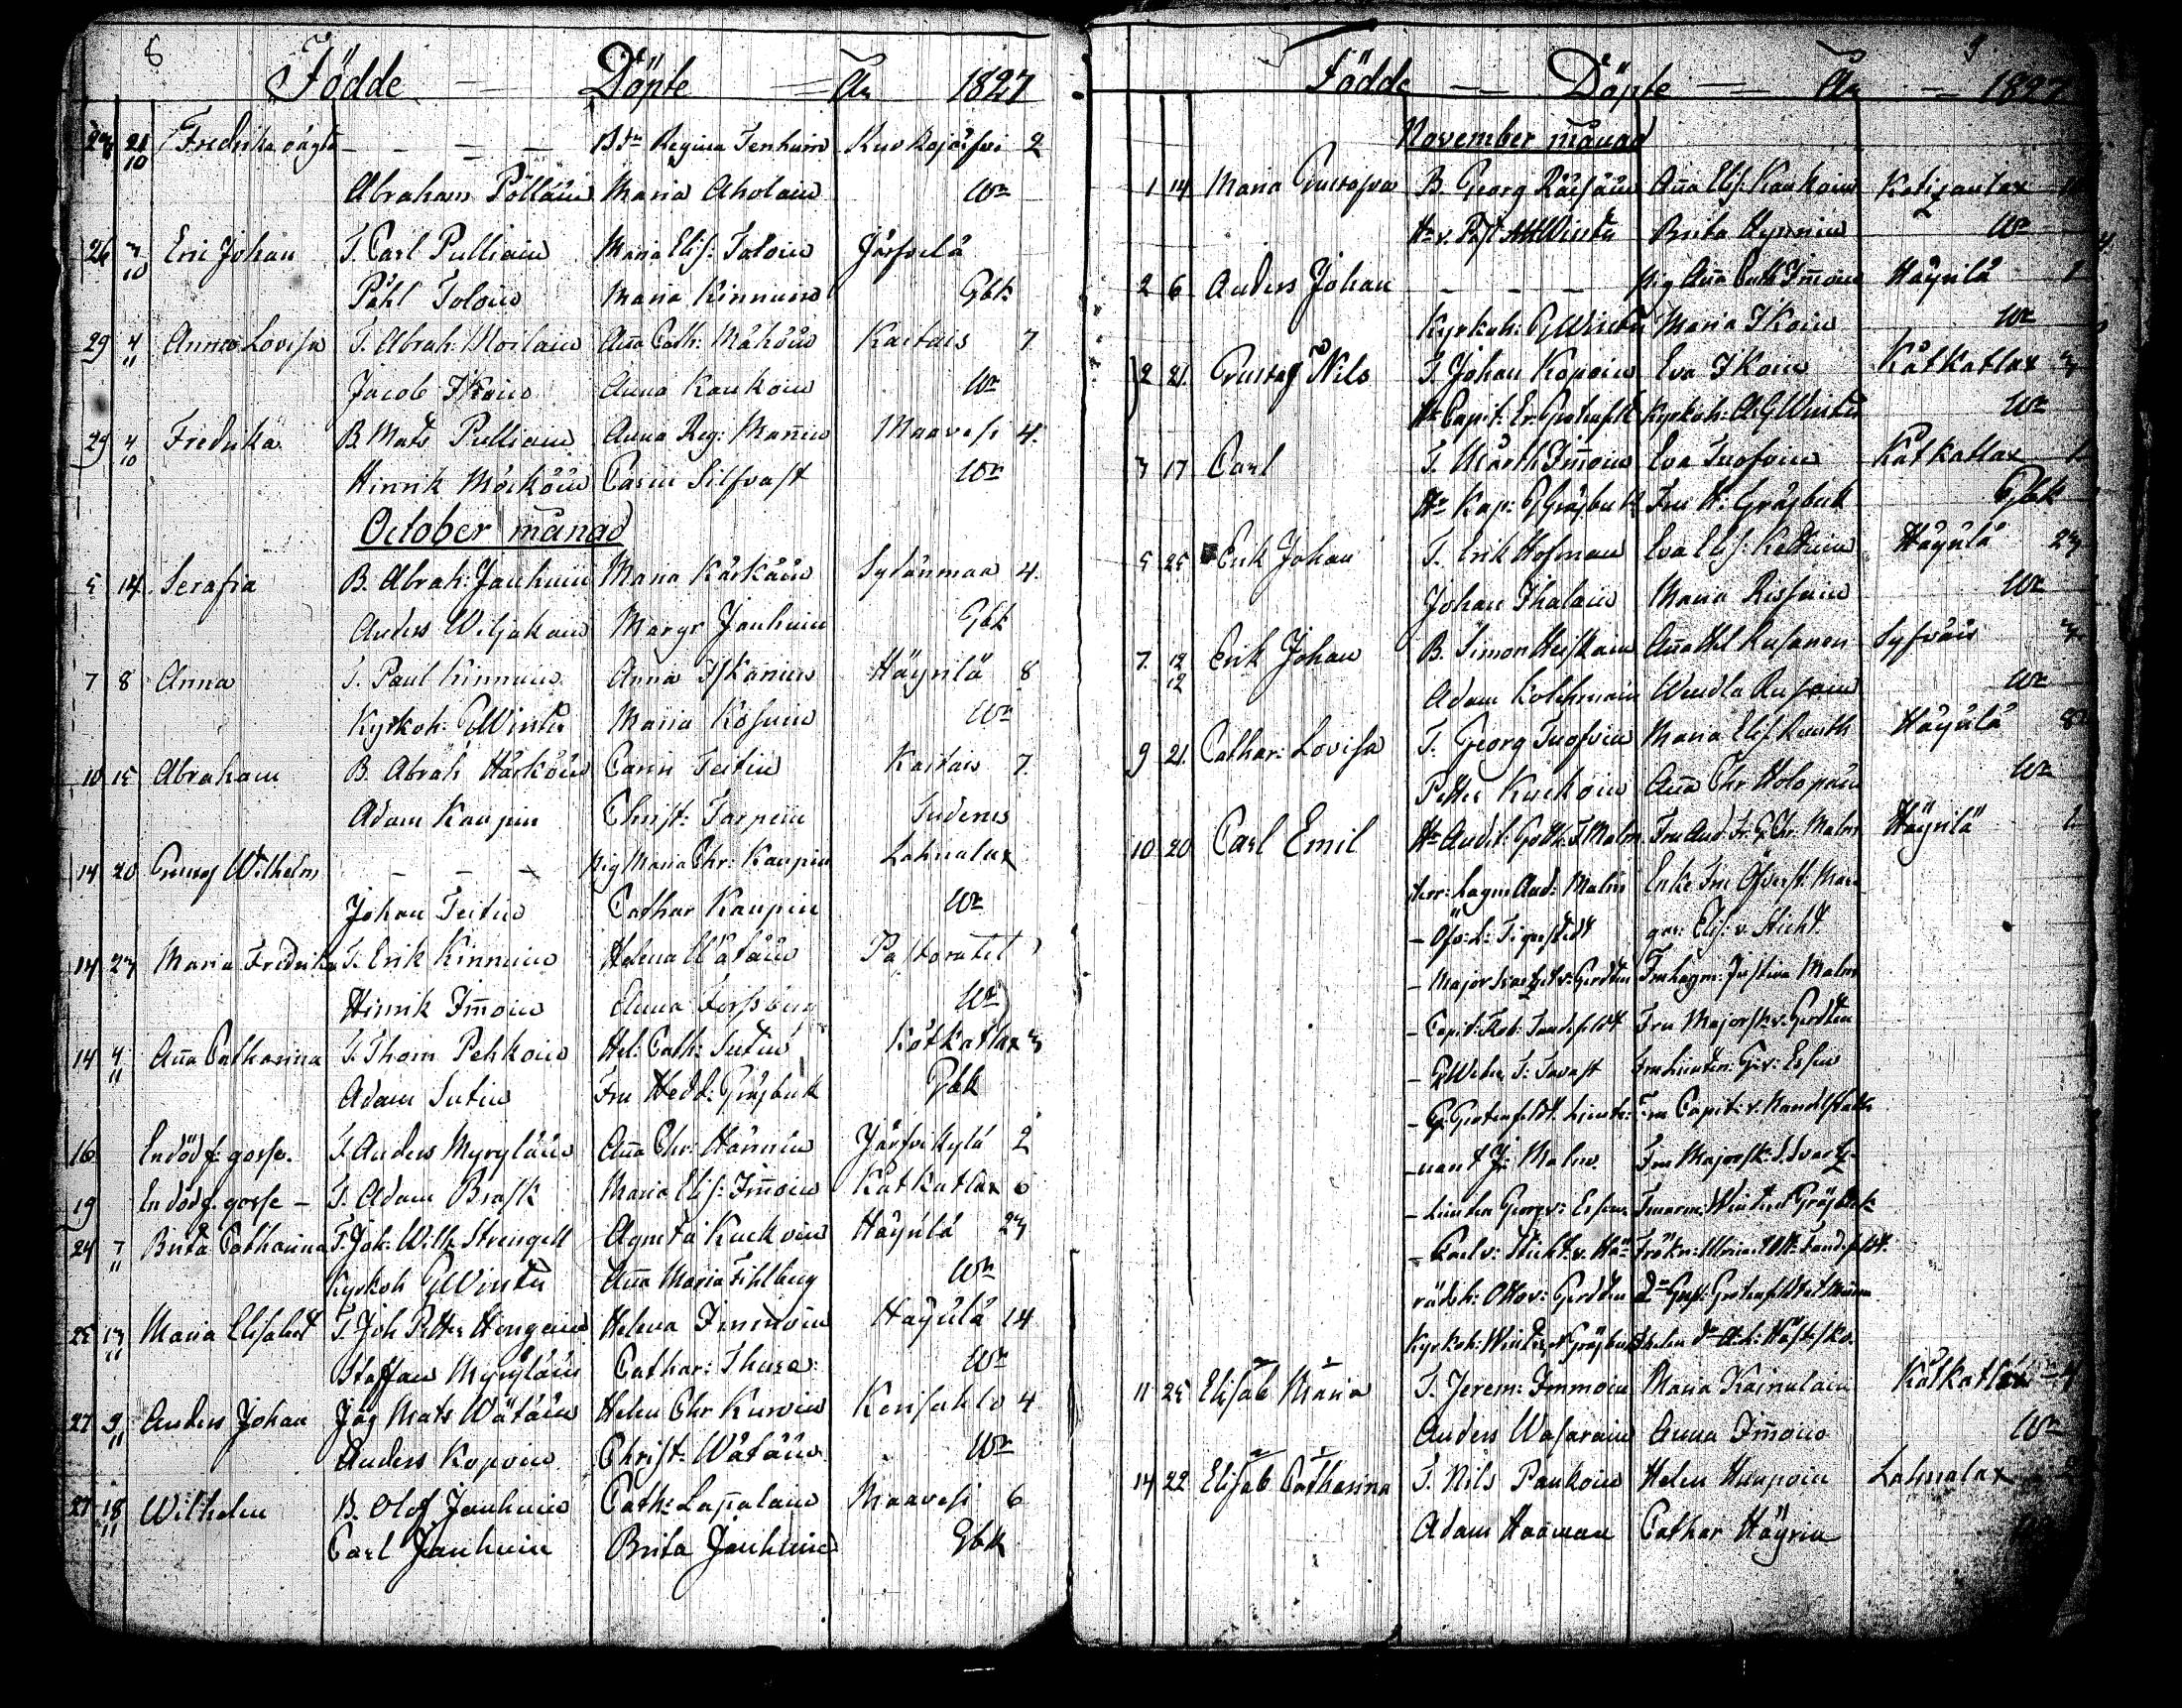 8
Födde — Döpte — År 1827
23 21/10 Fredrika oägta — — — — Regina Tenhuin Kuvkajärfvi 2
Abraham Pölläin Maria Aholain Wr
26 3/10 Eric Johan T. Carl Pulliain Maria Elis: Toloin Järfvelä
Påhl Toloin Maria Kinnuin Gbk
29 4/11 Anna Lovisa T. Abrah: Moilain Aña Cath: Mähöin Kaitais 7
Jacob Ikoin Anna Kaukoin Wr
29 4/10 Fredrika B. Mats Pulliain Anna Reg: Mañin Maavesi 4.
Hinrik Carin Silfvast Wr
October månad
5 14. Serafia B. Abrah: Jauhuin Maria Kärkäin Sydänmaa 4.
Anders Wiljakain Margr Jauhuin Gbk
7 8 Anna T. Paul Kinnuin Anna Iskanin Häyrilä 8
Kyrkoh: GWinter Maria Kosuin Wr
10 15 Abraham B. Abrah Härköin Carin Teitin Kaitais 7.
Adam Kaupin Christ: Tarpein Sudenes
14 20 Gustaf Wilhelm — — — Pig Maria Chr: Kaupin Lahnalax
Johan Teitin Cathar Kaupin Wr
14 23 Maria Fredrika T. Erik Kinnuin Helena Wätäin Pastoratet
Hinrik Im̃oin Anna Forssberg Wr
14 4/11 Aña Catharina T. Thom Pehkoin Hel: Cath: Sutin Kätkatlax 3
Adam Sutin Fru Hedd: Gråsbeck Gbk
16 En död f: gosse. T. Anders Myryläin Aña Chr: Hännin Järfvikylä 2
19 En död f. gosse — T. Adam Brask Maria Elis: Im̃oin Kätkatlax 6
24 7/11 Brita Catharina T. Joh: Wilh Strengell Agneta Kuckoin Häyrilä 23
Kyrkoh GWinter Aña Maria Fihlberg Wr
25 13/11 Maria Elisabet T. Joh Petter Hongain Helena Immoin Häyrilä 14
Staffan Myryläin Cathar: Thure Wr
27 9/11 Anders Johan Jäg Mats Wätäin Helen Chr Kurvin Kerisahlo 4
Anders Kopoin Christ: Wätäin Wr
27 18/11 Wilhelm B. Olof Jauhuin Cath: Lap̃alain Maavesi 6
Carl Jauhuin Brita Jauhuin Gbk
9
Födde — Döpte — År — 1827
November månad
1 14 Maria Gustafva B. Georg Räisäin Aña Elis: Kaukoin Kotizanlax
Hr v. Past Winter Brita Hynnin Wr
2 6 Anders Johan — — — Pig Aña Cath Im̃oin Häyrilä
Kyrkoh: GWinter Maria Ikoin Wr
2 21. Gustaf Nils T. Johan Kopoin Eva Ikoin Kätkatlax 3
Hr Capit: Er. Grotenfelt Kyrkoh: A: GWinter Wr
3 17 Carl T. Mårth Im̃oin Eva Tuofvin Kätkatlax
Hr Kap: G Gråsbeck Fru H: Gråsbeck Gbk
5 25 Erik Johan T. Erik Hofman Eva Elis: Kettuin Häyrilä 23
Johan Ihalain Maria Rissain Wr
7. 12/12 Erik Johan B. Simon Heiskain Aña Hel Rusanen Syfväis
Adam Kolehmain Wendla Rusain Wr
9 21. Cathar: Lovisa T. Georg Tuofvin Maria Elis Ruuth Häyrilä 8
Petter Kuckoin Aña Chr Holopain Wr
10 20 Carl Emil Hr Audit: Gotth: F. Malm Fru Aud: Fr: G: Chr: Malm Häyrilä
Herr: Lagm And: Malm Enke Fru Öfverst: Mar-
— Öfv: L: Tigerstedt gar: Elis: v. Sticht.
— Major v: Gerdten Fru Lagm: Justina Malm
— Capit: Rob: Tandefeldt Fru Majorsk: v. Gerdten
— T: Tavast Fru Lieuten: G: v: Essen
— G: Grotenfeldt. Lieute- Fru Capit: v. Nandelstadh
— nant Malm. Fru Majorsk:
— Lieuten Georg v: Essen. Winter o Gråsbeck
— Carl v: Sticht. v. Hä- Frökn: Ulrica o Ott: Tandefeldt.
rädsh: Otto v: Gerdten Grotenfeldt
Kyrkoh: Winter, o Gråsbeck
11 25 Elisab Maria T. Jerem: Immoin Maria Kainulain Kätkatlax 4
Anders Wasarain Anna Im̃oin Wr
14 22 Elisab Catharina T. Nils Paukoin Helen Huupoin Lahnalax
Adam Haaman Cathar Häyrin